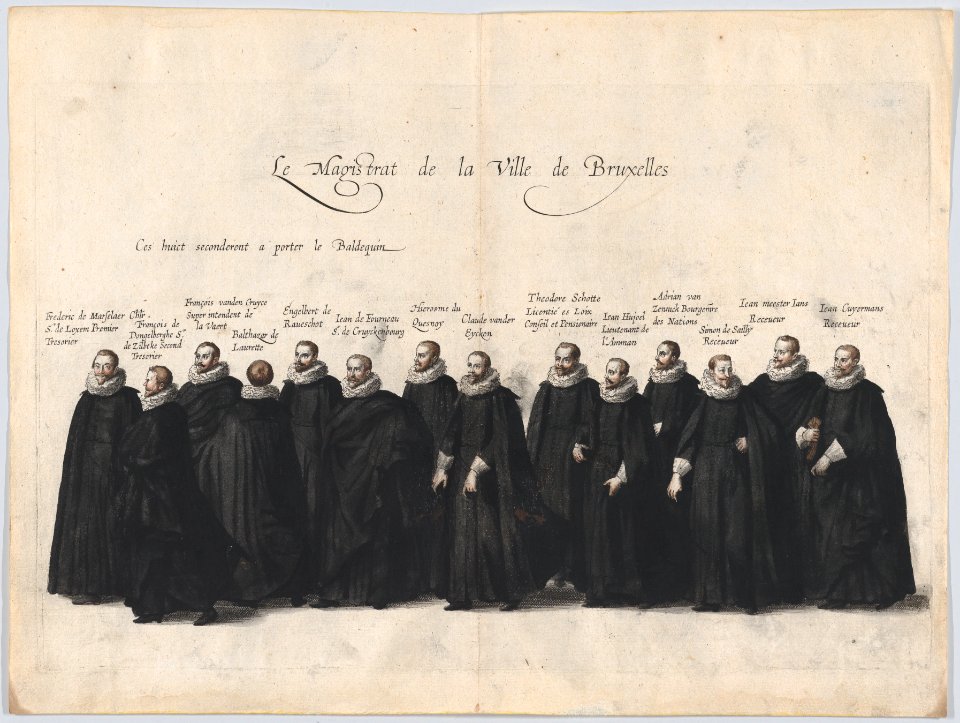 Le Magistrat de la Ville de Bruxelles
Ces huict seconderent a porter le Baldequin
Frederic de Marselaer
Sr. de Loxem Premier
Tresorier
Chlr.
François de
Dongelberghe Sr.
de Zilbeke Second
Tresorier
François vanden Cruyce
Super intendent de
la Vaert
Balthazar de
Laurette
Engelbert de
Raveschot
Iean de Fourneau
Sr. de Cruyckenbourg
Hierosme du
Quesnoy
Claude vander
Eycken
Theodore Schotte
Licentié es Loix
Conseil et Pensionaire
Iean Hujoel
Lieutenant de
l'Amman
Adrian van
Zennick Bourgemre
des Nations
Simon de Sailly
Receveur
Iean meester Ians
Receveur
Iean Cuyermans
Receveur